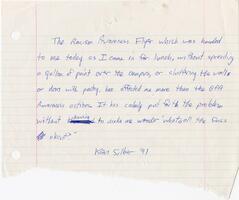 The Racism Awareness Flyer which was handed
to me today as I came in for lunch, without spreading
a gallon of paint over the campus, or cluttering the walls
or doors with poetry, has affected me more than the
Awareness actions. It has calmly put forth the problem
without to make me wonder "what's all the fuss
about?"
Ken Silber '91